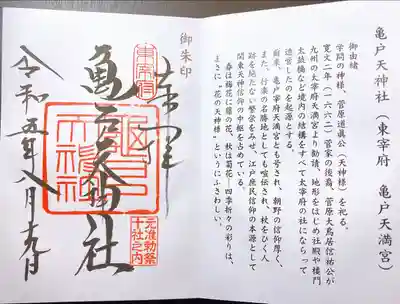 亀戸天神社(東宰府 亀戸天満宮)
御由緒
学問の神様、菅原道眞公(天神様)を祀る。
寛文二年(一六六二)菅家の後裔、菅原大鳥居信祐公が
九州の太宰府天満宮より勧請、地形をはじめ社殿や楼門
太鼓橋など境内の結構をすべて太宰府の社にならって
造営したのを起源とする。
爾来、亀戸宰府天満宮とも号され、朝野の信仰厚く、
また、行楽の名勝地としても喧伝され、杖をひく人
跡を絶たない繁栄をみせ、江戸庶民信仰の本源として
関東天神信仰の中枢を占めている。
春は梅花に藤の花、秋は菊花―四季折々の彩りは、
まさに“花の天神様”というにふさわしい。
御朱印
奉拝
東宰府
亀戸天神社
亀戸
天神社
元准勅祭
十社之内
令和五年八月十九日